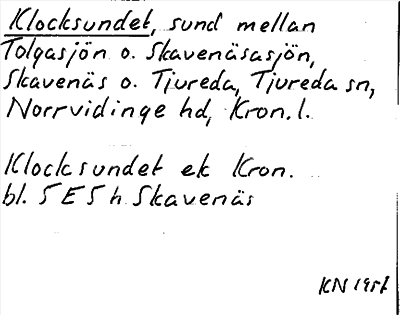 Klocksundet, sund mellan
Tolgasjön o. Skavenäsasjön,
Skavenäs o. Tjureda, Tjureda sn,
Norrvidinge hd, Kron. l.
Klocksundet ek Kron.
bl. 5 E 5 h Skavenäs
KN